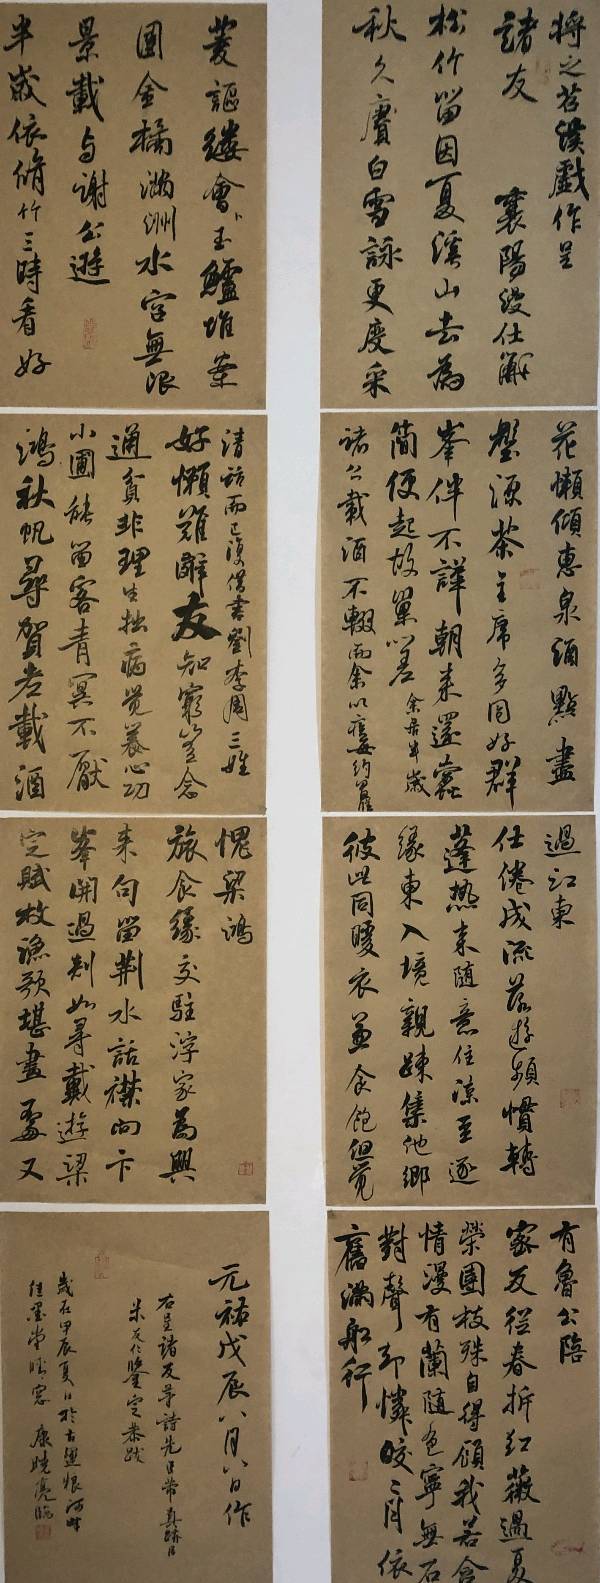 將之苕溪戲作呈
諸友 襄陽漫仕黻
松竹留因夏溪山去為
秋久賡白雪詠更度采
菱謳縷會卜玉鱸堆案
團金橘滿洲水宮無限
景載与謝公遊
半歲依脩竹三時看好
花懶傾惠泉酒點盡
壑源茶主席多同好群
峯伴不譁朝来還蠹
簡便起故巢嗟 余居半歲
諸公載酒不輟而余以疾每約置膳
清話而已復借書劉李周三姓
好懶難辭友知窮豈念
通貧非理生拙病觉養心功
小圃能留客青冥不厭
鴻秋帆尋賀老載酒
過江東
仕倦成流落遊頻慣轉
蓬热来随意住涼至逐
緣東入境親踈集他鄉
彼此同暖衣兼食飽但觉
愧梁鴻
旅食緣交駐浮家為興
来句留荆水話襟向卞
峯開過剡如尋戴遊梁
定賦枚漁歌堪畫處又
有魯公陪
家友從春拆紅薇過夏
榮團枝殊自得顧我若含
情漫有蘭随色寧無石
對聲却憐皎皎月依
舊滿船行
元祐戊辰八月八日作
右呈諸友等詩先臣芾真跡臣
米友仁鑒定恭跋
歲在甲辰夏日於古運粮河畔
康曉亮臨